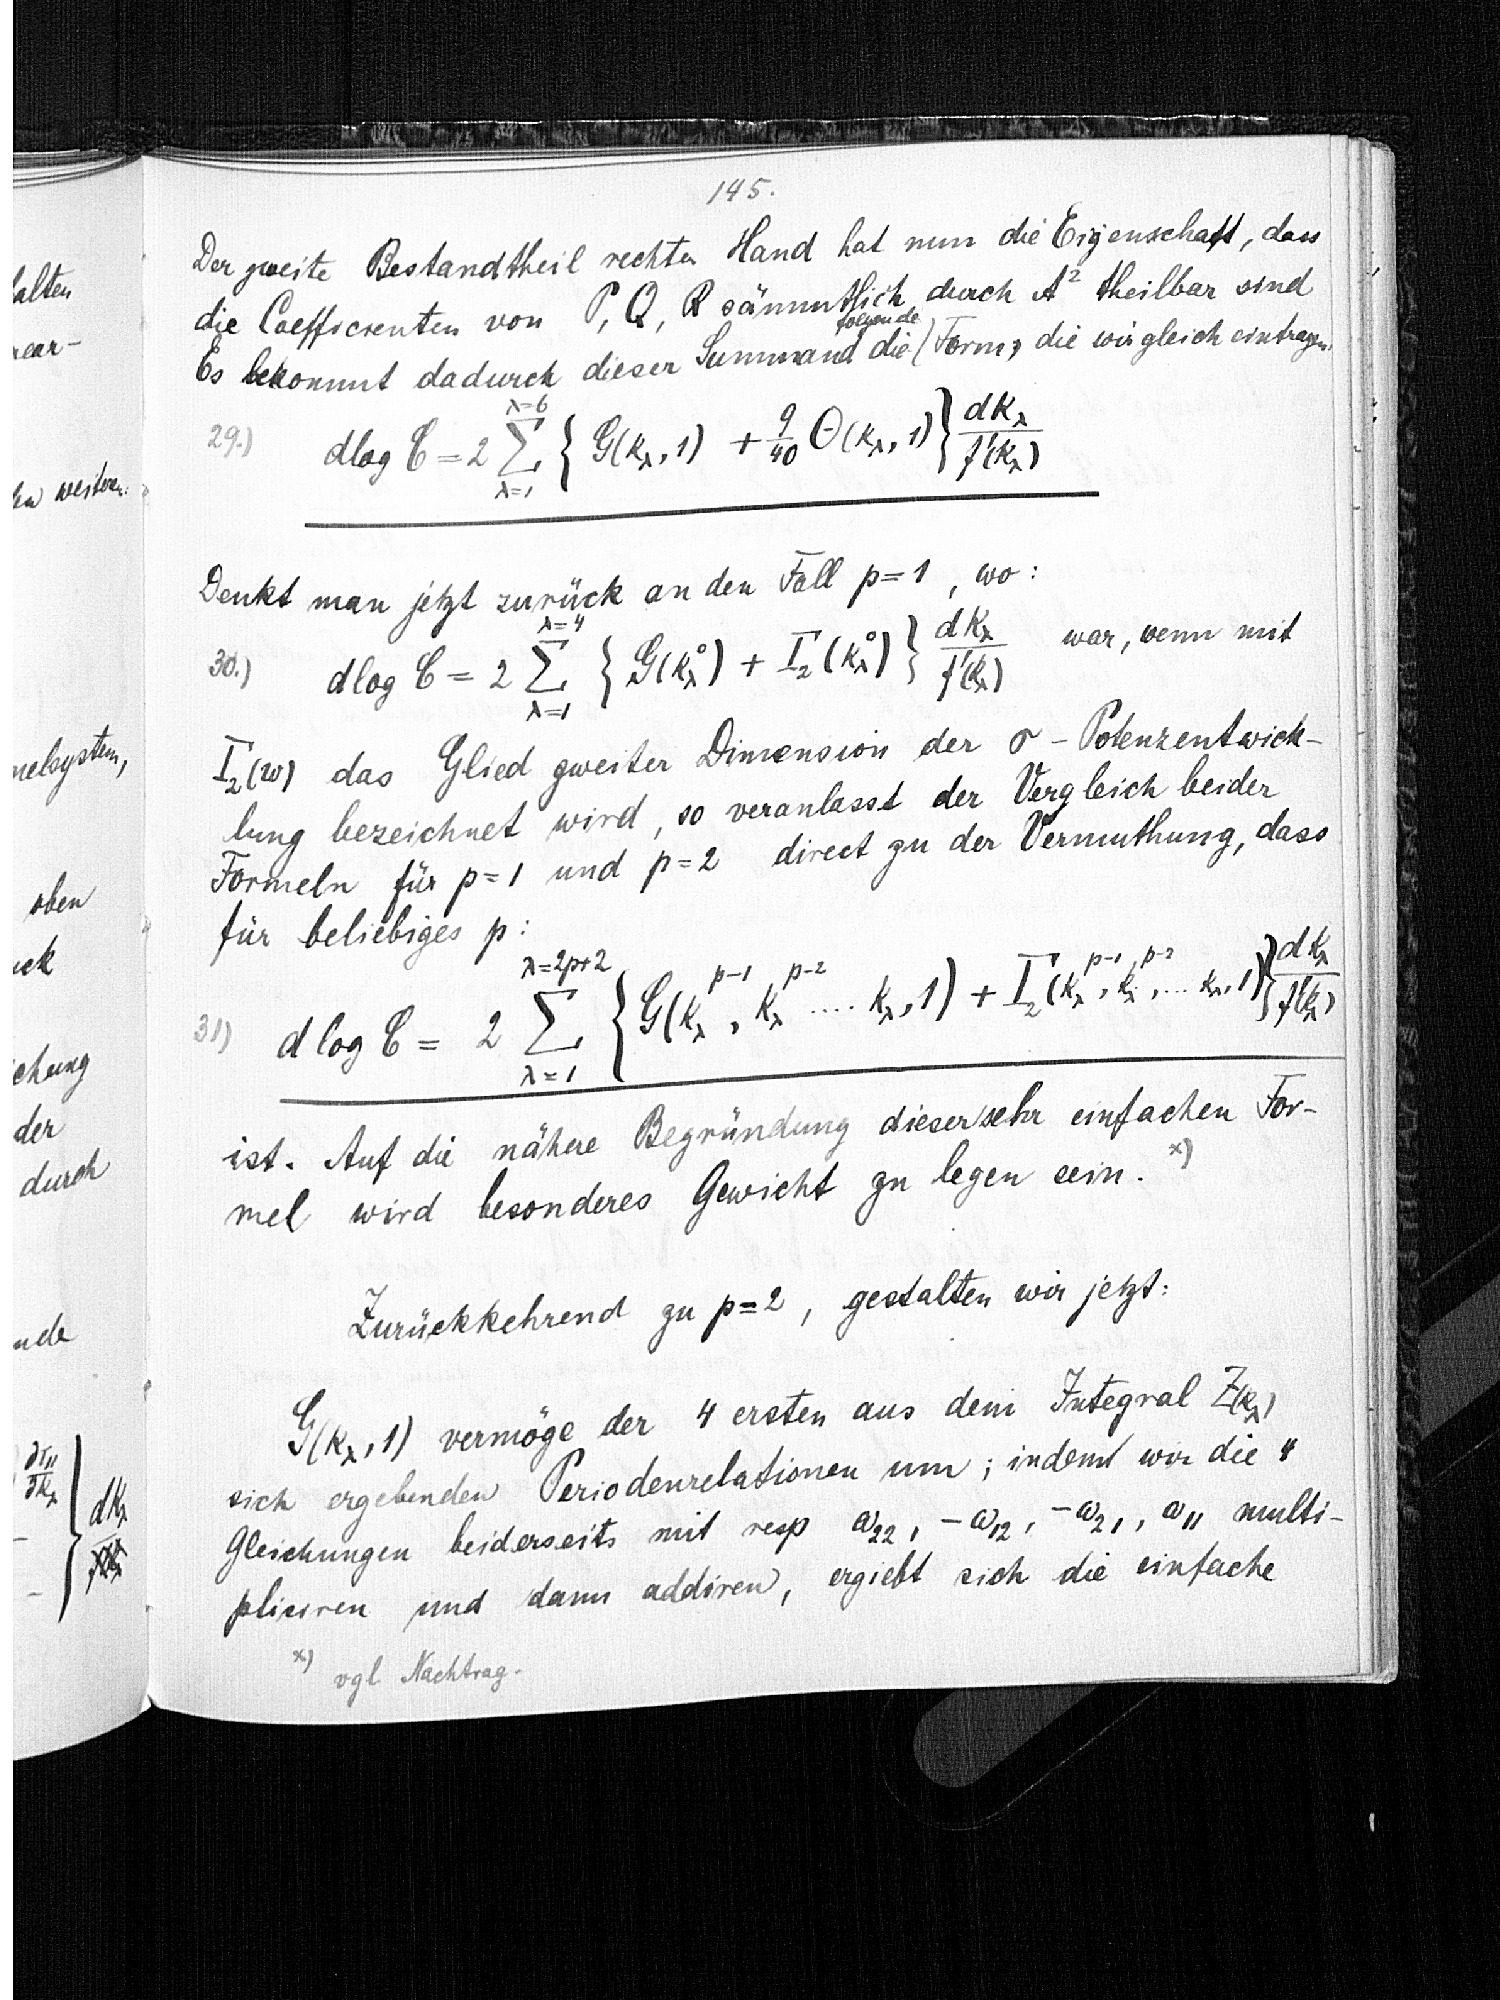 145.
Der zweite Bestandtheil rechter Hand hat nun die Eigenschaft, dass
die Coefficienten von P, Q, R sämmtlich durch A² theilbar sind
folgende
Es bekommt dadurch dieser Summand die Form, die wir gleich eintragen:
29.) dlog C = 2 Σ_{λ=1}^{λ=6} { G(k_λ, 1) + 9/40 Θ(k_λ, 1) } dk_λ / f'(k_λ)
Denkt man jetzt zurück an den Fall p = 1, wo:
30.) dlog C = 2 Σ_{λ=1}^{λ=4} { G(k_λ^0) + I_2(k_λ^0) } dk_λ / f'(k_λ) war, wenn mit
I_2(w) das Glied zweiter Dimension der σ-Potenzentwick-
lung bezeichnet wird, so veranlasst der Vergleich beider
Formeln für p = 1 und p = 2 direct zu der Vermuthung, dass
für beliebiges p:
31) dlog C = 2 Σ_{λ=1}^{λ=2p+2} { G(k_λ^{p-1}, k_λ^{p-2} .... k_λ, 1) + I_2(k_λ^{p-1}, k_λ^{p-2}, ... k_λ, 1) } dk_λ / f'(k_λ)
ist. Auf die nähere Begründung dieser sehr einfachen For-
mel wird besonderes Gewicht zu legen sein. x)
Zurückkehrend zu p = 2, gestalten wir jetzt:
G(k_λ, 1) vermöge der 4 ersten aus dem Integral Z(k_λ)
sich ergebenden Periodenrelationen um; indem wir die 4
Gleichungen beiderseits mit resp ω_22, -ω_12, -ω_21, ω_11 multi-
pliciren und dann addiren, ergiebt sich die einfache
x) vgl Nachtrag.
alten
near-
weitere:
nelsystem,
oben
ck
chung
der
durch
nde
∂τ_11 / ∂k_λ } dk_λ